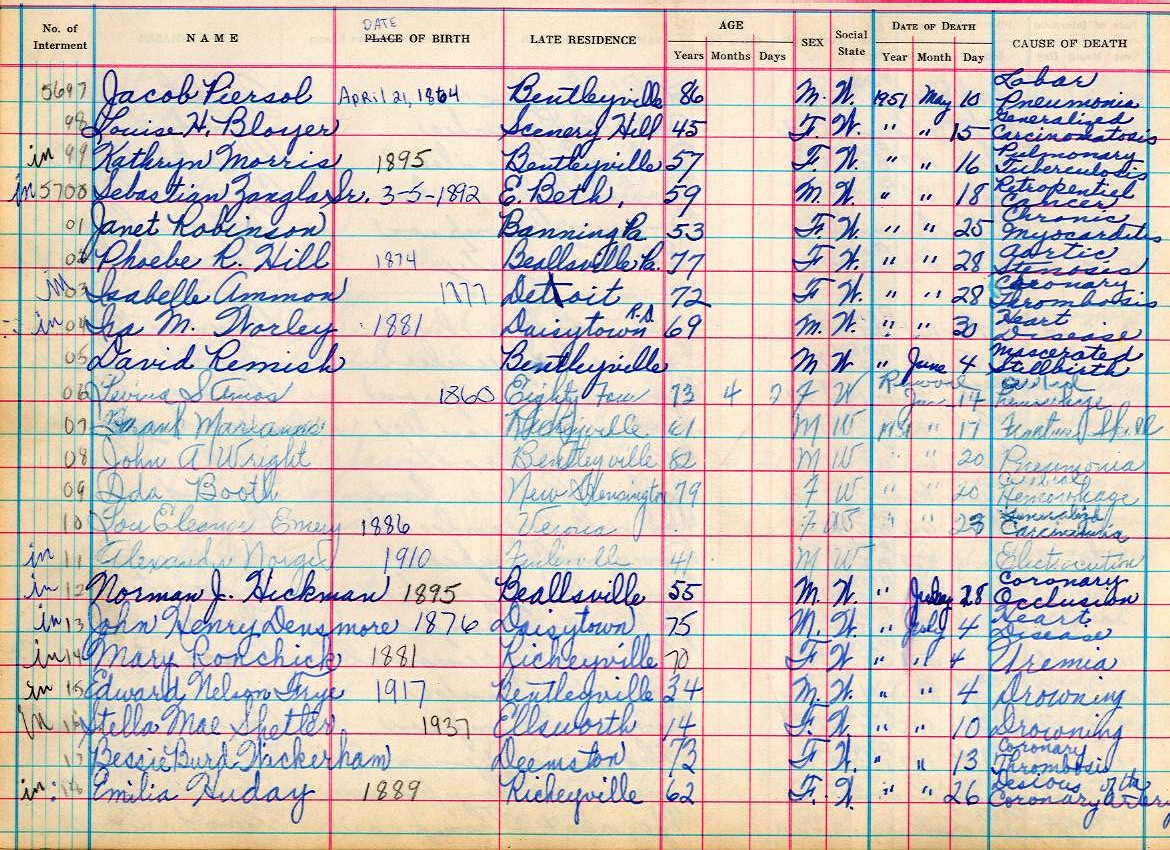 DATE
No. of Interment NAME PLACE OF BIRTH LATE RESIDENCE AGE Years Months Days SEX Social State DATE OF DEATH Year Month Day CAUSE OF DEATH
5697 Jacob Piersol April 21, 1864 Bentleyville 86 M. W. 1951 May 10 Lobar Pneumonia
98 Louise H. Bloyer Scenery Hill 45 F. W. " " 15 Generalized Carcinomatosis
in 99 Kathryn Morris 1895 Bentleyville 57 F. W. " " 16 Pulmonary Tuberculosis
in 5700 Sebastian Zanglar Sr. 3-5-1892 E. Beth. 59 M. W. " " 18 Cancer
01 Janet Robinson Banning Pa 53 F. W. " " 25 Chronic Myocarditis
02 Phoebe R. Hill 1874 Beallsville Pa. 77 F. W. " " 28 Aortic Stenosis
in 03 Isabelle Ammon Detroit 72 F W. " " 28 Coronary Thrombosis
in 04 Ira M. Worley 1881 Daisytown R.D. 69 M. W. " " 30 Heart Disease
05 David Remish Bentleyville M W " June 4 Mascerated Stillbirth
06 Levina S Amos 1860 Eighty Four 73 4 F W 14 Hemorrhage
07 Frank 61 M W " 17
08 John A Wright Bentleyville 82 M W " " 20 Pneumonia
09 Ida Booth New Kensington 79 F W " " 20 Cerebral Hemorrhage
10 Lou Eleanor Emery 1886 Verona F W " " 23 Generalized
in 11 1910 41 M W " " Electrocution
in 12 Norman J. Hickman 1895 Beallsville 55 M. W. " 28 Coronary Occlusion
in 13 John Henry Densmore 1876 Daisytown 75 M. W. " July 4 Heart Disease
in 14 Mary Ronchick 1881 Richeyville 70 F W. " " 4 Uremia
in 15 Edward Nelson Frye 1917 Bentleyville 34 M. W. " " 4 Drowning
in 16 Stella Mae Shetler 1937 Ellsworth 14 F. W. " " 10 Drowning
17 Bessie Burd Wickerham Deemston 73 F W. " " 13 Coronary Thrombosis
in 18 Emilia Huday 1889 Richeyville 62 F. W. " " 26 of the Coronary Artery